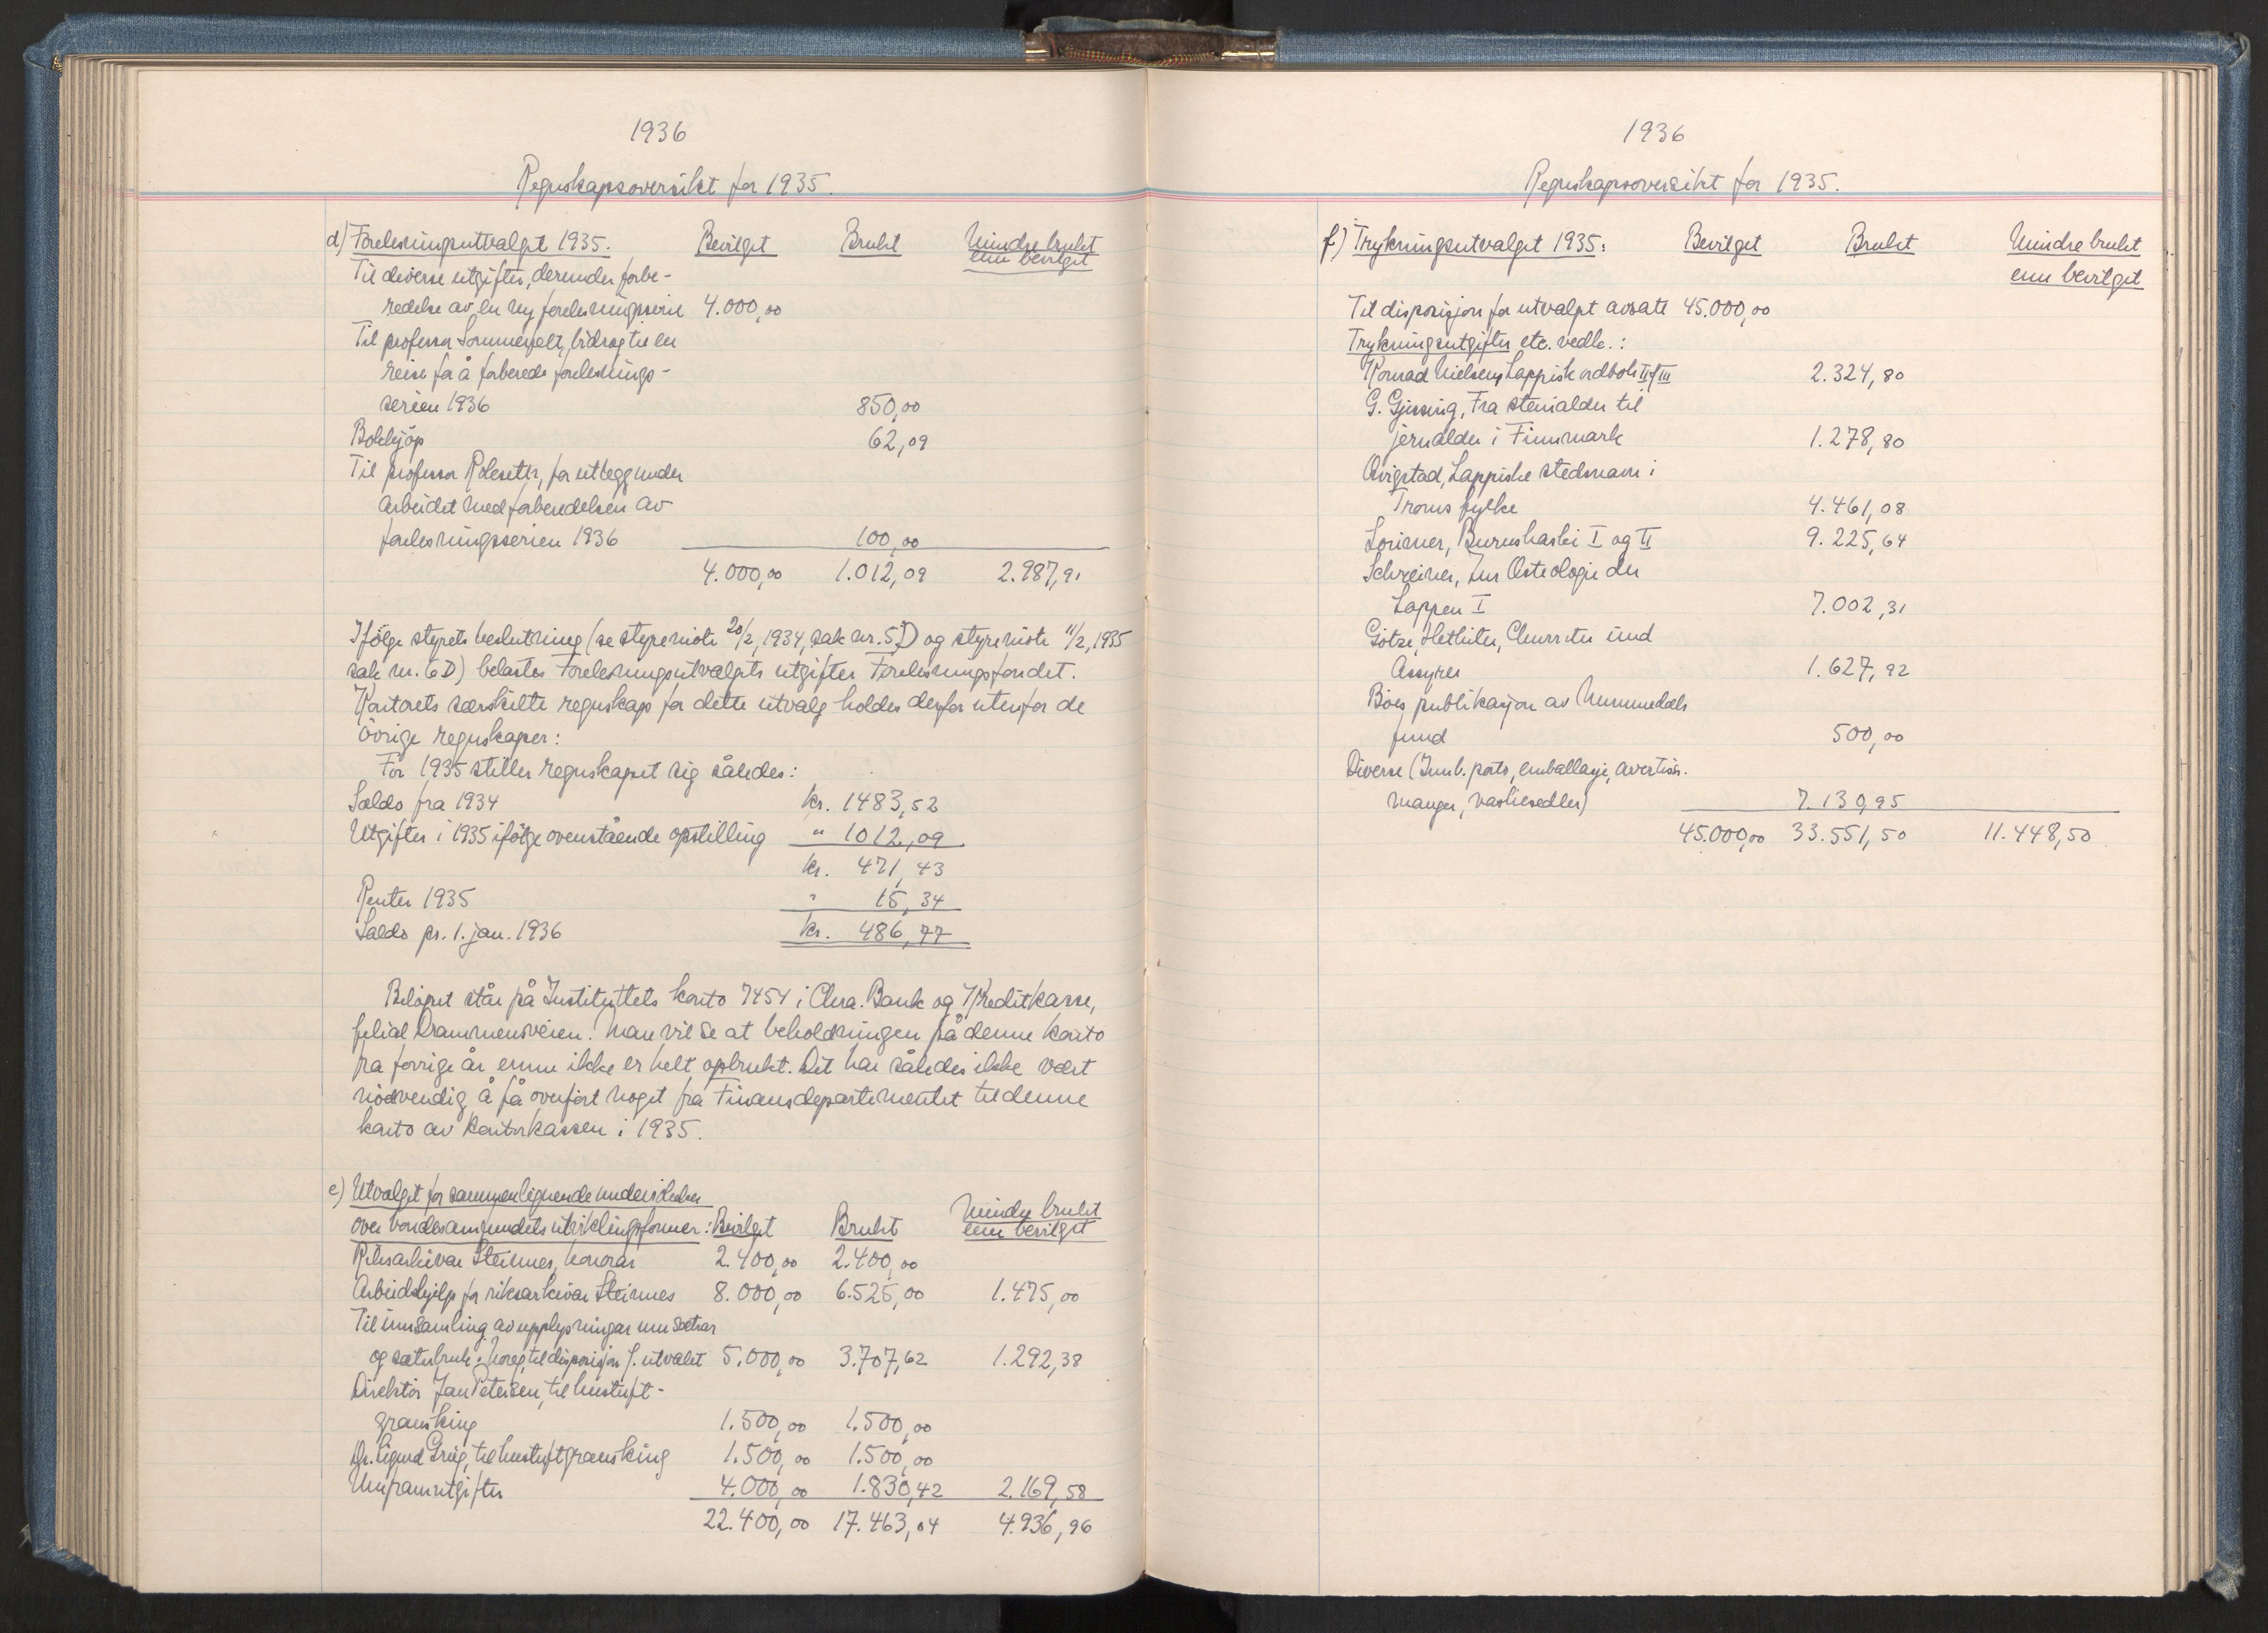 1936
Regnskapsoversikt for 1935.
d) Forelesningsutvalget 1935. Bevilget Brukt Mindre brukt enn bevilget
Til diverse utgifter, derunder forbe-
redelse av en ny forelesningsserie 4.000,00
Til professor Sommerfelt, bidrag til en
reise for å forberede forelesnings-
serien 1936 850,00
Bokkjøp 62,09
Til professor Kolsrud, for utlegg under
arbeidet med forberedelsen av
forelesningsserien 1936 100,00
4.000,00 1.012,09 2.987,91
Ifölge styrets beslutning (se styremøte 20/2, 1934, sak nr. 5D) og styremøte 11/2, 1935
sak nr. 6D) belastes Forelesningsutvalgets utgifter Forelesningsfondet.
Kontorets særskilte regnskap for dette utvalg holdes derfor utenfor de
övrige regnskaper:
For 1935 stiller regnskapet sig således:
Saldo fra 1934 kr. 1483,52
Utgifter i 1935 ifölge ovenstående opstilling " 1012,09
kr. 471,43
Renter 1935 " 15,34
Saldo pr. 1. jan. 1936 kr. 486,77
Belöpet står på Instituttets konto 7454 i Chra. Bank og Kreditkasse,
filial Drammensveien. Man vil se at beholdningen på denne konto
fra forrige år ennu ikke er helt opbrukt. Det har således ikke vært
nödvendig å få overfört noget fra Finansdepartementet til denne
konto av kontorkassen i 1935.
e) Utvalget for sammenlignende undersökelser
over bondesamfundets utviklingsformer: Bevilget Brukt Mindre brukt enn bevilget
Riksarkivar Steinnes, honorar 2.400,00 2.400,00
Arbeidshjelp for riksarkivar Steinnes 8.000,00 6.525,00 1.475,00
Til innsamling av upplysningar um sætrar
og sæterbruk i Noreg, til disposisjon f. utvalet 5.000,00 3.707,62 1.292,38
Direktör Jan Petersen, til hustuft-
gransking 1.500,00 1.500,00
Dr. Sigurd Grieg, til hustuftgransking 1.500,00 1.500,00
Umframutgifter 4.000,00 1.830,42 2.169,58
22.400,00 17.463,04 4.936,96
1936
Regnskapsoversikt for 1935.
f) Trykningsutvalget 1935: Bevilget Brukt Mindre brukt
enn bevilget
Til disposisjon for utvalget avsatt 45.000,00
Trykningsutgifter etc. vedk.:
Konrad Nielsens Lappisk ordbok II/III 2.324,80
G. Gjessing, Fra steinalder til
jernalder i Finnmark 1.278,80
Qvigstad, Lappiske stedsnavn i
Troms fylke 4.461,08
Lorimer, Burushaski I og II 9.225,64
Schreiner, Zur Osteologie der
Lappen I 7.002,31
Götze, Hethiter, Churriter und
Assyrer 1.627,92
Böes publikasjon av Nummedals
fund 500,00
Diverse (Innb. porto, emballasje, avertiss.
manger, vaskesedler) 7.130,95
45.000,00 33.551,50 11.448,50